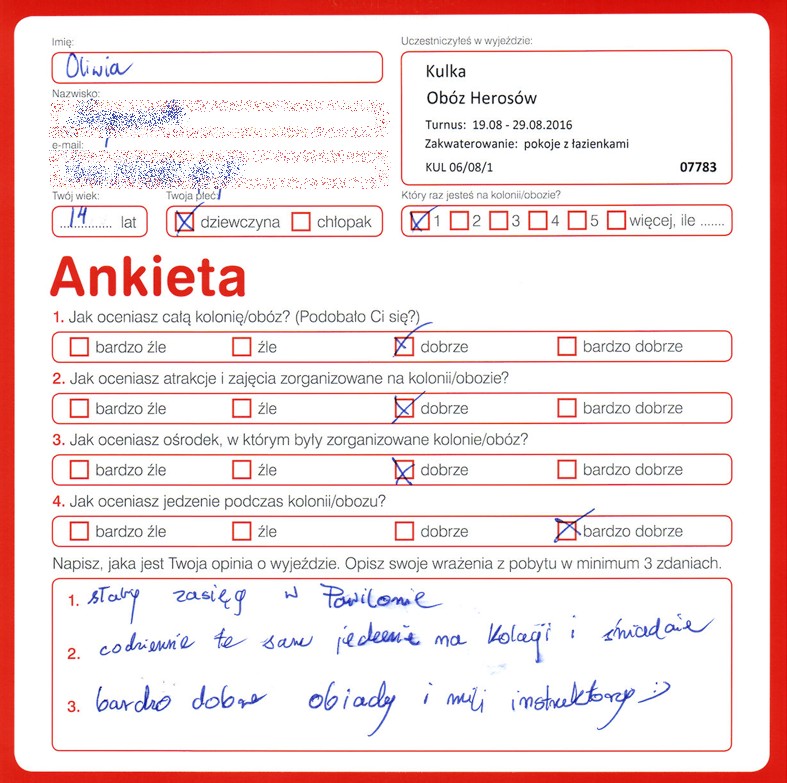 Imię:
Oliwia
Nazwisko:
e-mail:
Twój wiek:
14 lat
Twoja płeć
dziewczyna chłopak
Uczestniczyłeś w wyjeździe:
Kulka
Obóz Herosów
Turnus: 19.08 - 29.08.2016
Zakwaterowanie: pokoje z łazienkami
KUL 06/08/1 07783
Który raz jesteś na kolonii/obozie?
1 2 3 4 5 więcej, ile .......
Ankieta
1. Jak oceniasz całą kolonię/obóz? (Podobało Ci się?)
bardzo źle źle dobrze bardzo dobrze
2. Jak oceniasz atrakcje i zajęcia zorganizowane na kolonii/obozie?
bardzo źle źle dobrze bardzo dobrze
3. Jak oceniasz ośrodek, w którym były zorganizowane kolonie/obóz?
bardzo źle źle dobrze bardzo dobrze
4. Jak oceniasz jedzenie podczas kolonii/obozu?
bardzo źle źle dobrze bardzo dobrze
Napisz, jaka jest Twoja opinia o wyjeździe. Opisz swoje wrażenia z pobytu w minimum 3 zdaniach.
1. słaby zasięg w Pawilonie
2. codziennie te same jedzenie na kolagi i śniadanie
3. bardzo dobre obiady i mili instruktorzy :)